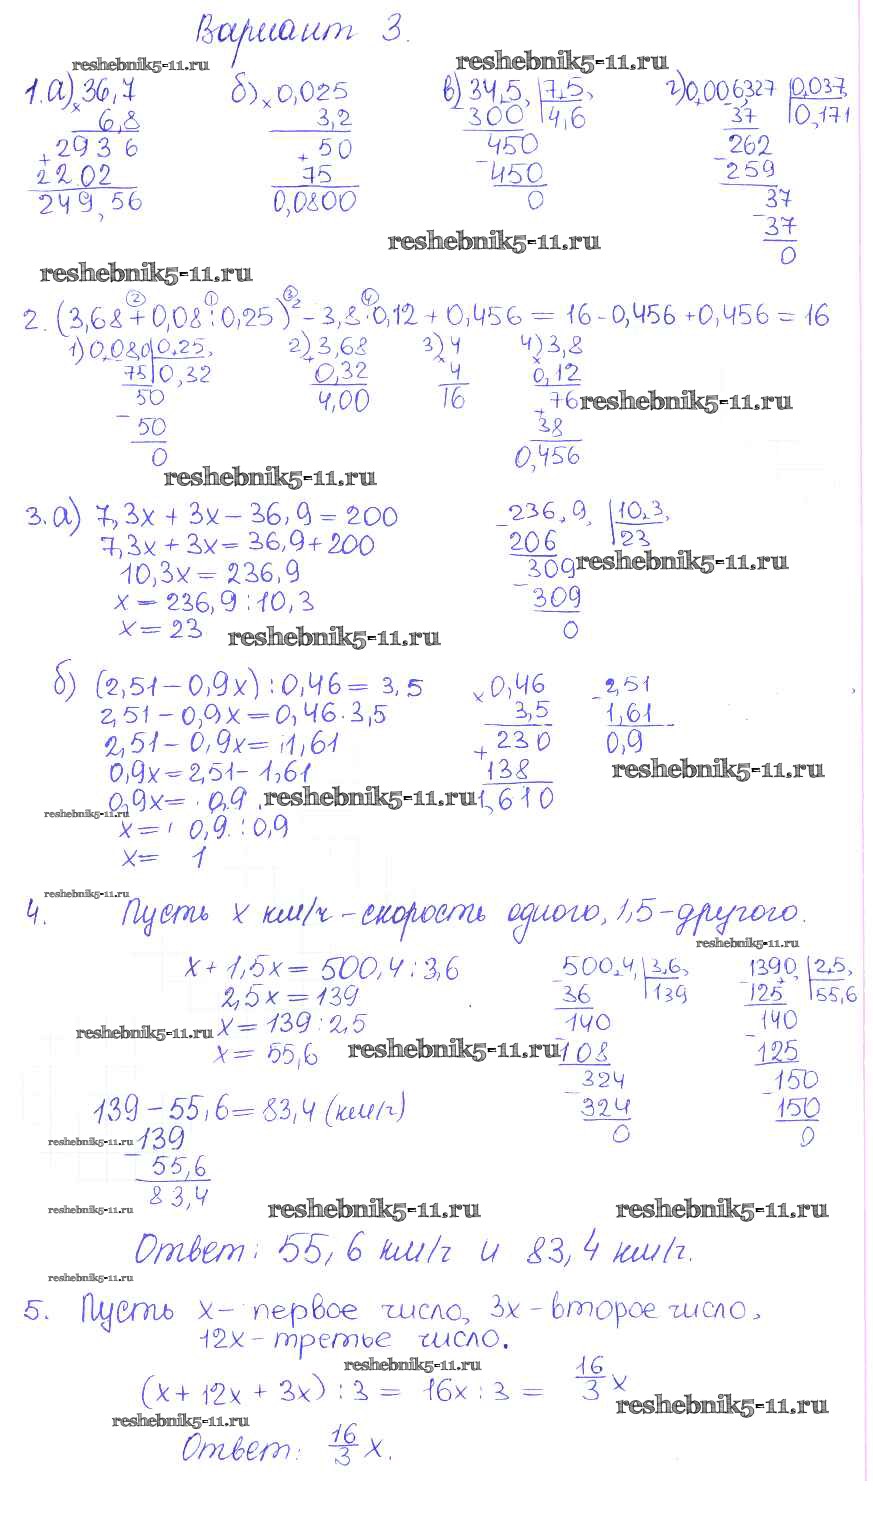 Вариант 3.
reshebnik5-11.ru reshebnik5-11.ru
1. а) 36,7 б) 0,025 в) 34,5, 7,5, г) 0,006,327 0,037,
× 6,8 × 3,2 - 300 4,6 - 37 0,171
+ 2936 + 50 450 262
2202 75 - 450 - 259
249,56 0,0800 0 37
- 37
0
reshebnik5-11.ru
reshebnik5-11.ru
2. (3,68 + 0,08 : 0,25)² - 3,8 · 0,12 + 0,456 = 16 - 0,456 + 0,456 = 16
1) 0,080 0,25, 2) 3,68 3) 4 4) 3,8
75 0,32 + 0,32 × 4 × 0,12
50 4,00 16 + 76 reshebnik5-11.ru
- 50 38
0 0,456
reshebnik5-11.ru
3. а) 7,3x + 3x - 36,9 = 200 - 236,9, 10,3,
7,3x + 3x = 36,9 + 200 206 23
10,3x = 236,9 309 reshebnik5-11.ru
x = 236,9 : 10,3 - 309
x = 23 0
reshebnik5-11.ru
б) (2,51 - 0,9x) : 0,46 = 3,5 × 0,46 - 2,51
2,51 - 0,9x = 0,46 · 3,5 3,5 1,61
2,51 - 0,9x = 1,61 + 230 0,9
0,9x = 2,51 - 1,61 138 reshebnik5-11.ru
0,9x = 0,9 reshebnik5-11.ru 1,610
reshebnik5-11.ru
x = 0,9 : 0,9
x = 1
reshebnik5-11.ru
4. Пусть x км/ч - скорость одного, 1,5 - другого.
reshebnik5-11.ru
x + 1,5x = 500,4 : 3,6 500,4, 3,6, 1390, 2,5,
2,5x = 139 - 36 139 - 125 55,6
reshebnik5-11.ru x = 139 : 2,5 140 140
x = 55,6 reshebnik5-11.ru - 108 - 125
324 150
139 - 55,6 = 83,4 (км/ч) - 324 - 150
reshebnik5-11.ru - 139 0 0
55,6
83,4
reshebnik5-11.ru reshebnik5-11.ru reshebnik5-11.ru
Ответ: 55,6 км/ч и 83,4 км/ч.
reshebnik5-11.ru
5. Пусть x - первое число, 3x - второе число,
12x - третье число.
reshebnik5-11.ru
(x + 12x + 3x) : 3 = 16x : 3 = 16/3 x
reshebnik5-11.ru
reshebnik5-11.ru
Ответ: 16/3 x.